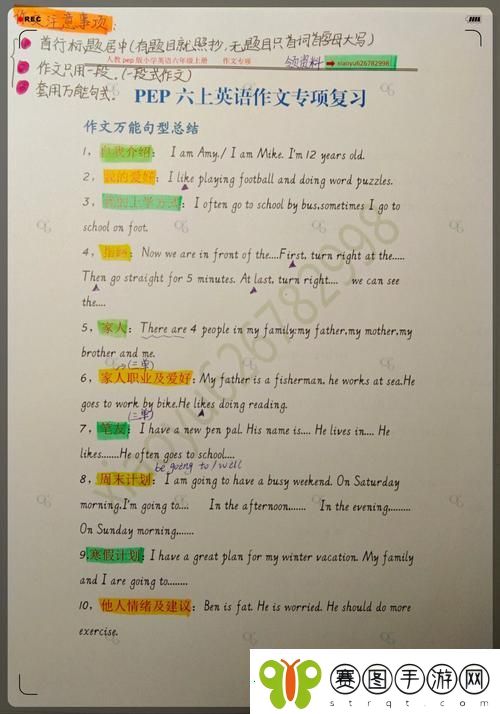 REC
作文注意事项:
① 首行标题居中(有题目就照抄,无题目只首词首字母大写)
人教pep版小学英语六年级上册 作文专项
领资料 ➡ xiaoyu626782998
② 作文只用一段.(一段式作文)
③ 套用万能句式.
PEP 六上英语作文专项复习
作文万能句型总结
1, 自我介绍: I am Amy./ I am Mike. I'm 12 years old.
2, 我的爱好: I like playing football and doing word puzzles.
3, 我的上学方式: I often go to school by bus,sometimes I go to
school on foot.
4, 指路: Now we are in front of the....First, turn right at the.....
Then go straight for 5 minutes. At last, turn right.... we can see
the....
5, 家人: There are 4 people in my family:my father,my mother,my
brother and me.
(三单)
6, 家人职业及爱好: My father is a fisherman, he works at sea.He
goes to work by bike.He likes doing reading.
(三单)
7, 笔友: I have a new pen pal. His name is.... He lives in.... He
likes.......He often goes to school....
be going to / well
8, 周末计划: I am going to have a busy weekend. On Saturday
morning,I'm going to.... In the afternoon....... In the evening........
On Sunday morning,......
9,寒假计划: I have a great plan for my winter vacation. My family
and I are going to........
10, 他人情绪及建议: Ben is fat. He is worried. He should do more
exercise.
xiaoyu626782998
赛图手游网
strqt.com